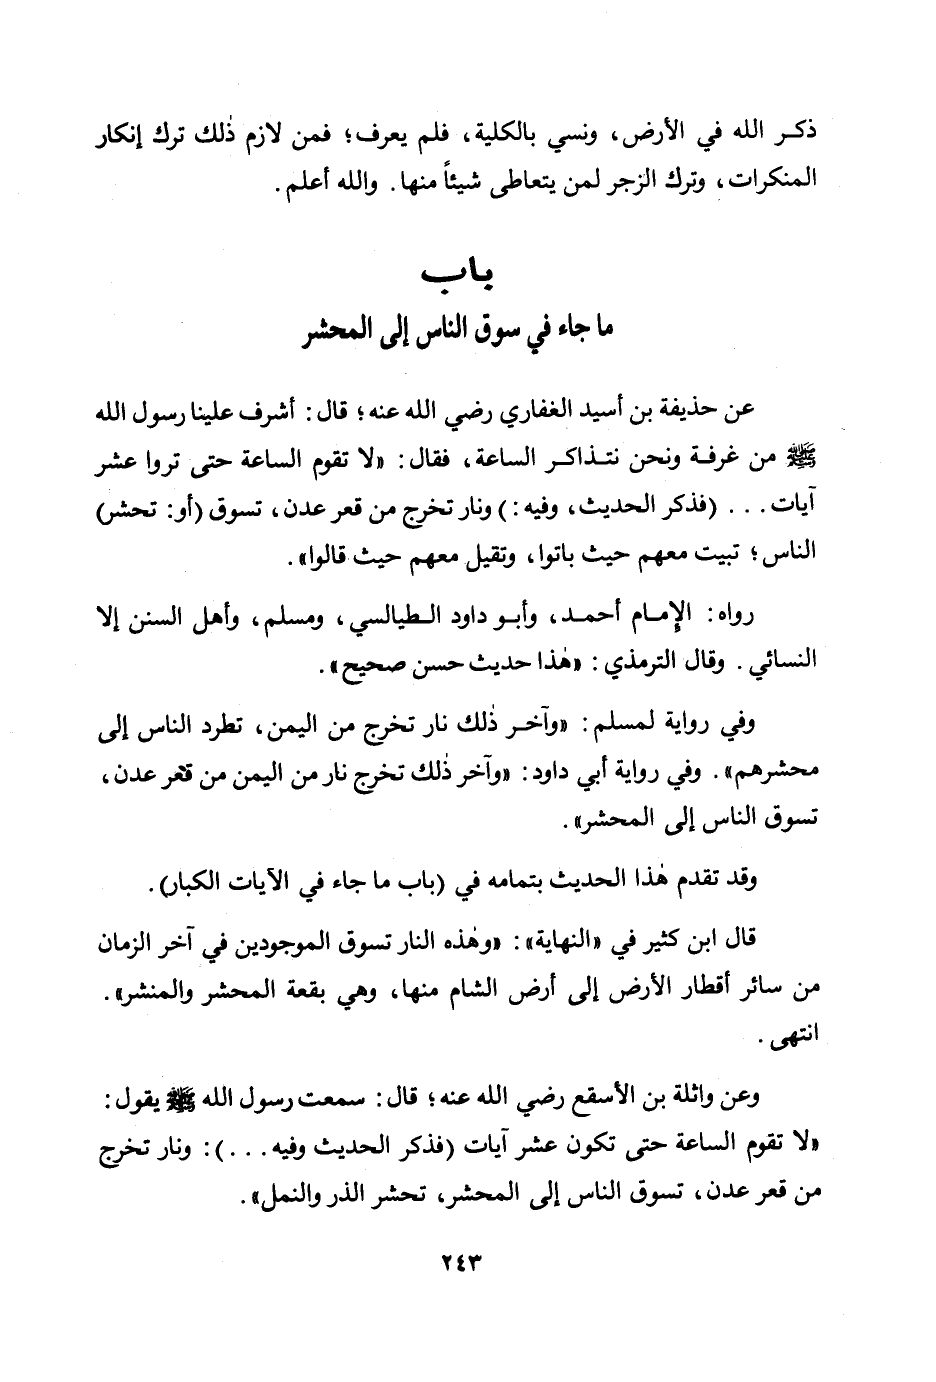 ذكر الله في الأرض، ونسي بالكلية، فلم يعرف؛ فمن لازم ذٰلك ترك إنكار
المنكرات، وترك الزجر لمن يتعاطى شيئاً منها. والله أعلم.
باب
ما جاء في سوق الناس إلى المحشر
عن حذيفة بن أسيد الغفاري رضي الله عنه؛ قال: أشرف علينا رسول الله
ﷺ من غرفة ونحن نتذاكر الساعة، فقال: «لا تقوم الساعة حتى تروا عشر
آيات... (فذكر الحديث، وفيه:) ونار تخرج من قعر عدن، تسوق (أو: تحشر)
الناس؛ تبيت معهم حيث باتوا، وتقيل معهم حيث قالوا».
رواه: الإمام أحمد، وأبو داود الطيالسي، ومسلم، وأهل السنن إلا
النسائي. وقال الترمذي: «هٰذا حديث حسن صحيح».
وفي رواية لمسلم: «وآخر ذٰلك نار تخرج من اليمن، تطرد الناس إلى
محشرهم». وفي رواية أبي داود: «وآخر ذٰلك تخرج نار من اليمن من قعر عدن،
تسوق الناس إلى المحشر».
وقد تقدم هٰذا الحديث بتمامه في (باب ما جاء في الآيات الكبار).
قال ابن كثير في «النهاية»: «وهٰذه النار تسوق الموجودين في آخر الزمان
من سائر أقطار الأرض إلى أرض الشام منها، وهي بقعة المحشر والمنشر».
انتهى.
وعن واثلة بن الأسقع رضي الله عنه؛ قال: سمعت رسول الله ﷺ يقول:
«لا تقوم الساعة حتى تكون عشر آيات (فذكر الحديث وفيه...): ونار تخرج
من قعر عدن، تسوق الناس إلى المحشر، تحشر الذر والنمل».
٢٤٣